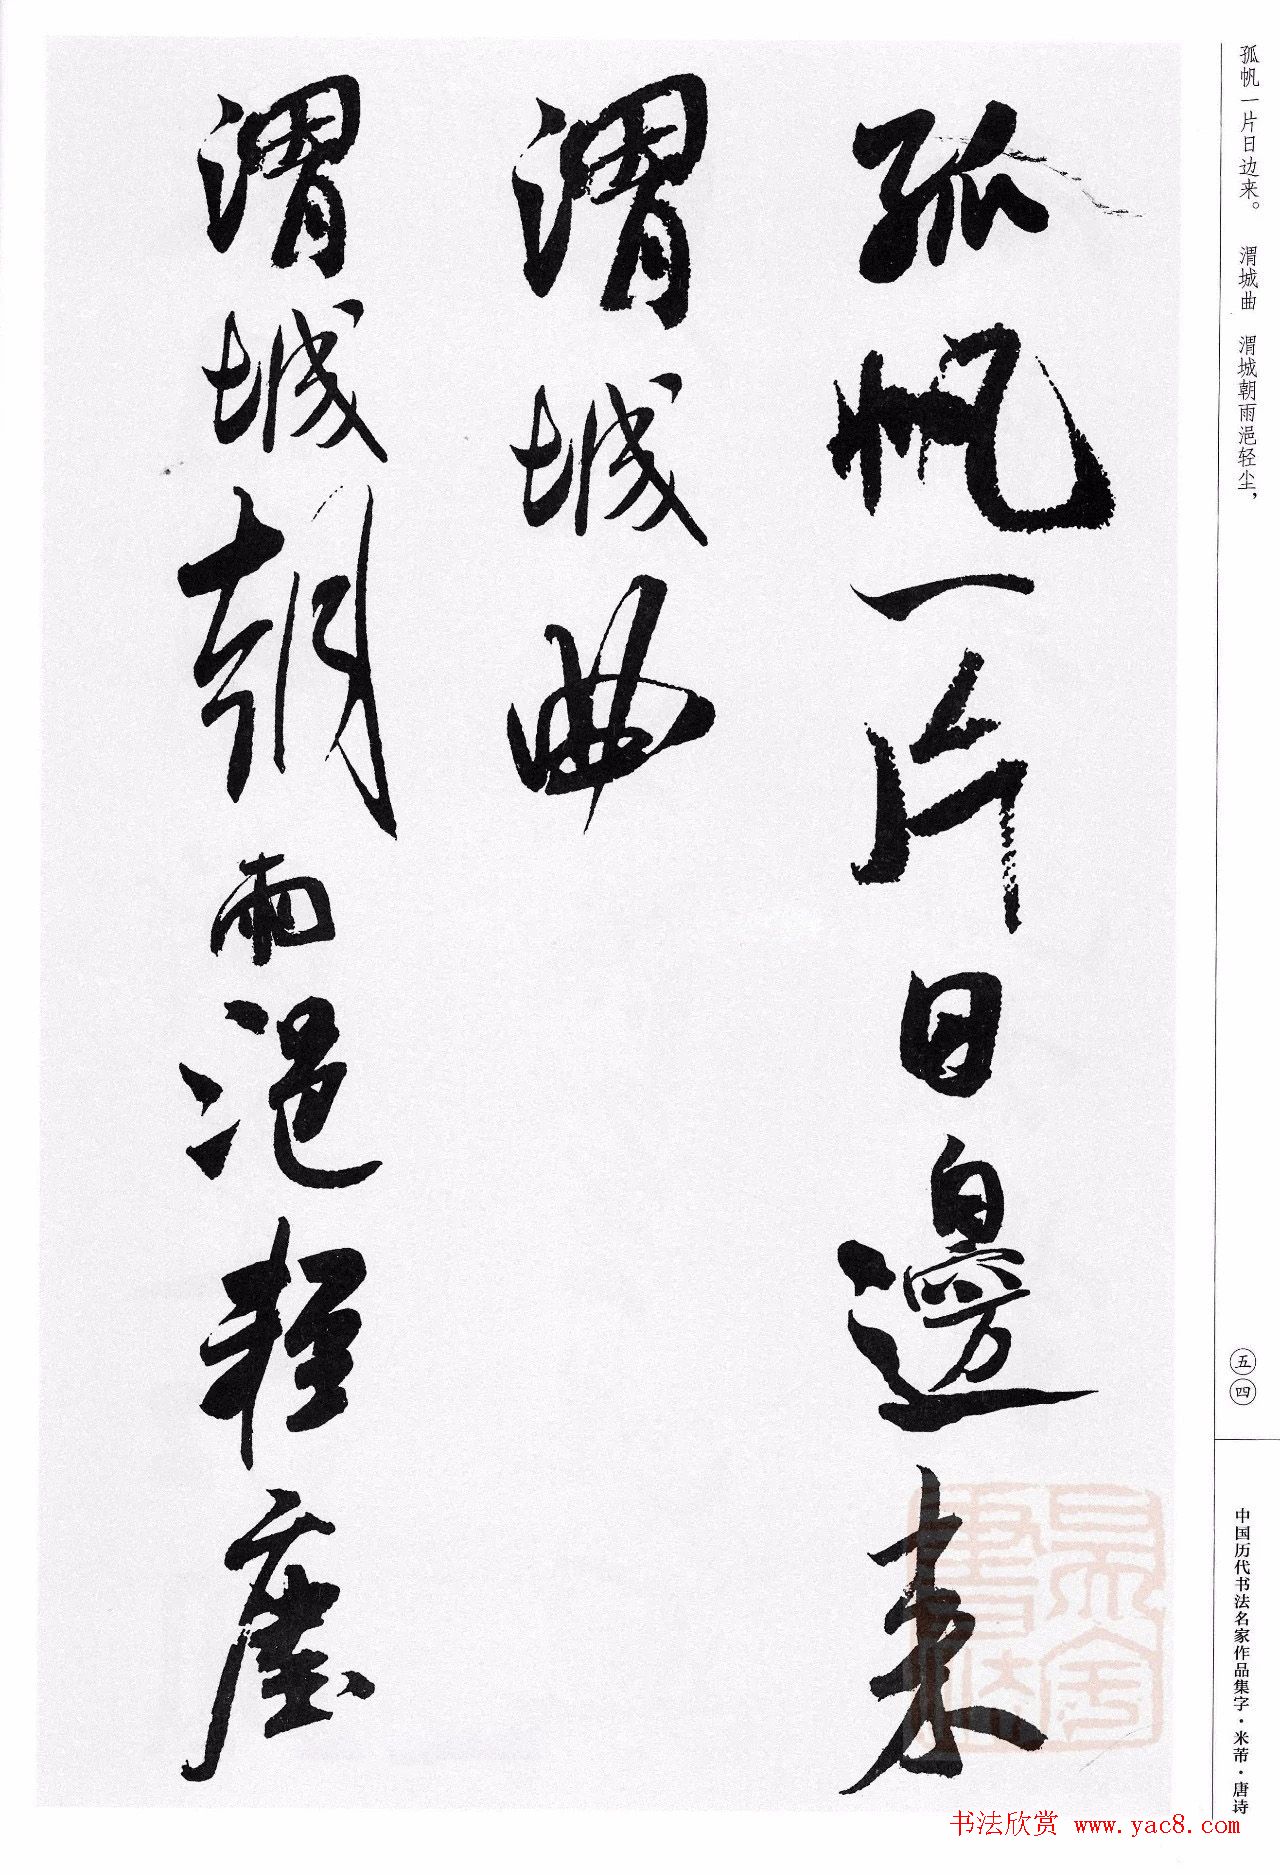 孤帆一片日边来。 渭城曲 渭城朝雨浥轻尘，
孤帆一片日邊来
渭城曲
渭城朝雨浥輕塵
五四
中国历代书法名家作品集字·米芾·唐诗
书法欣赏 www.yac8.com